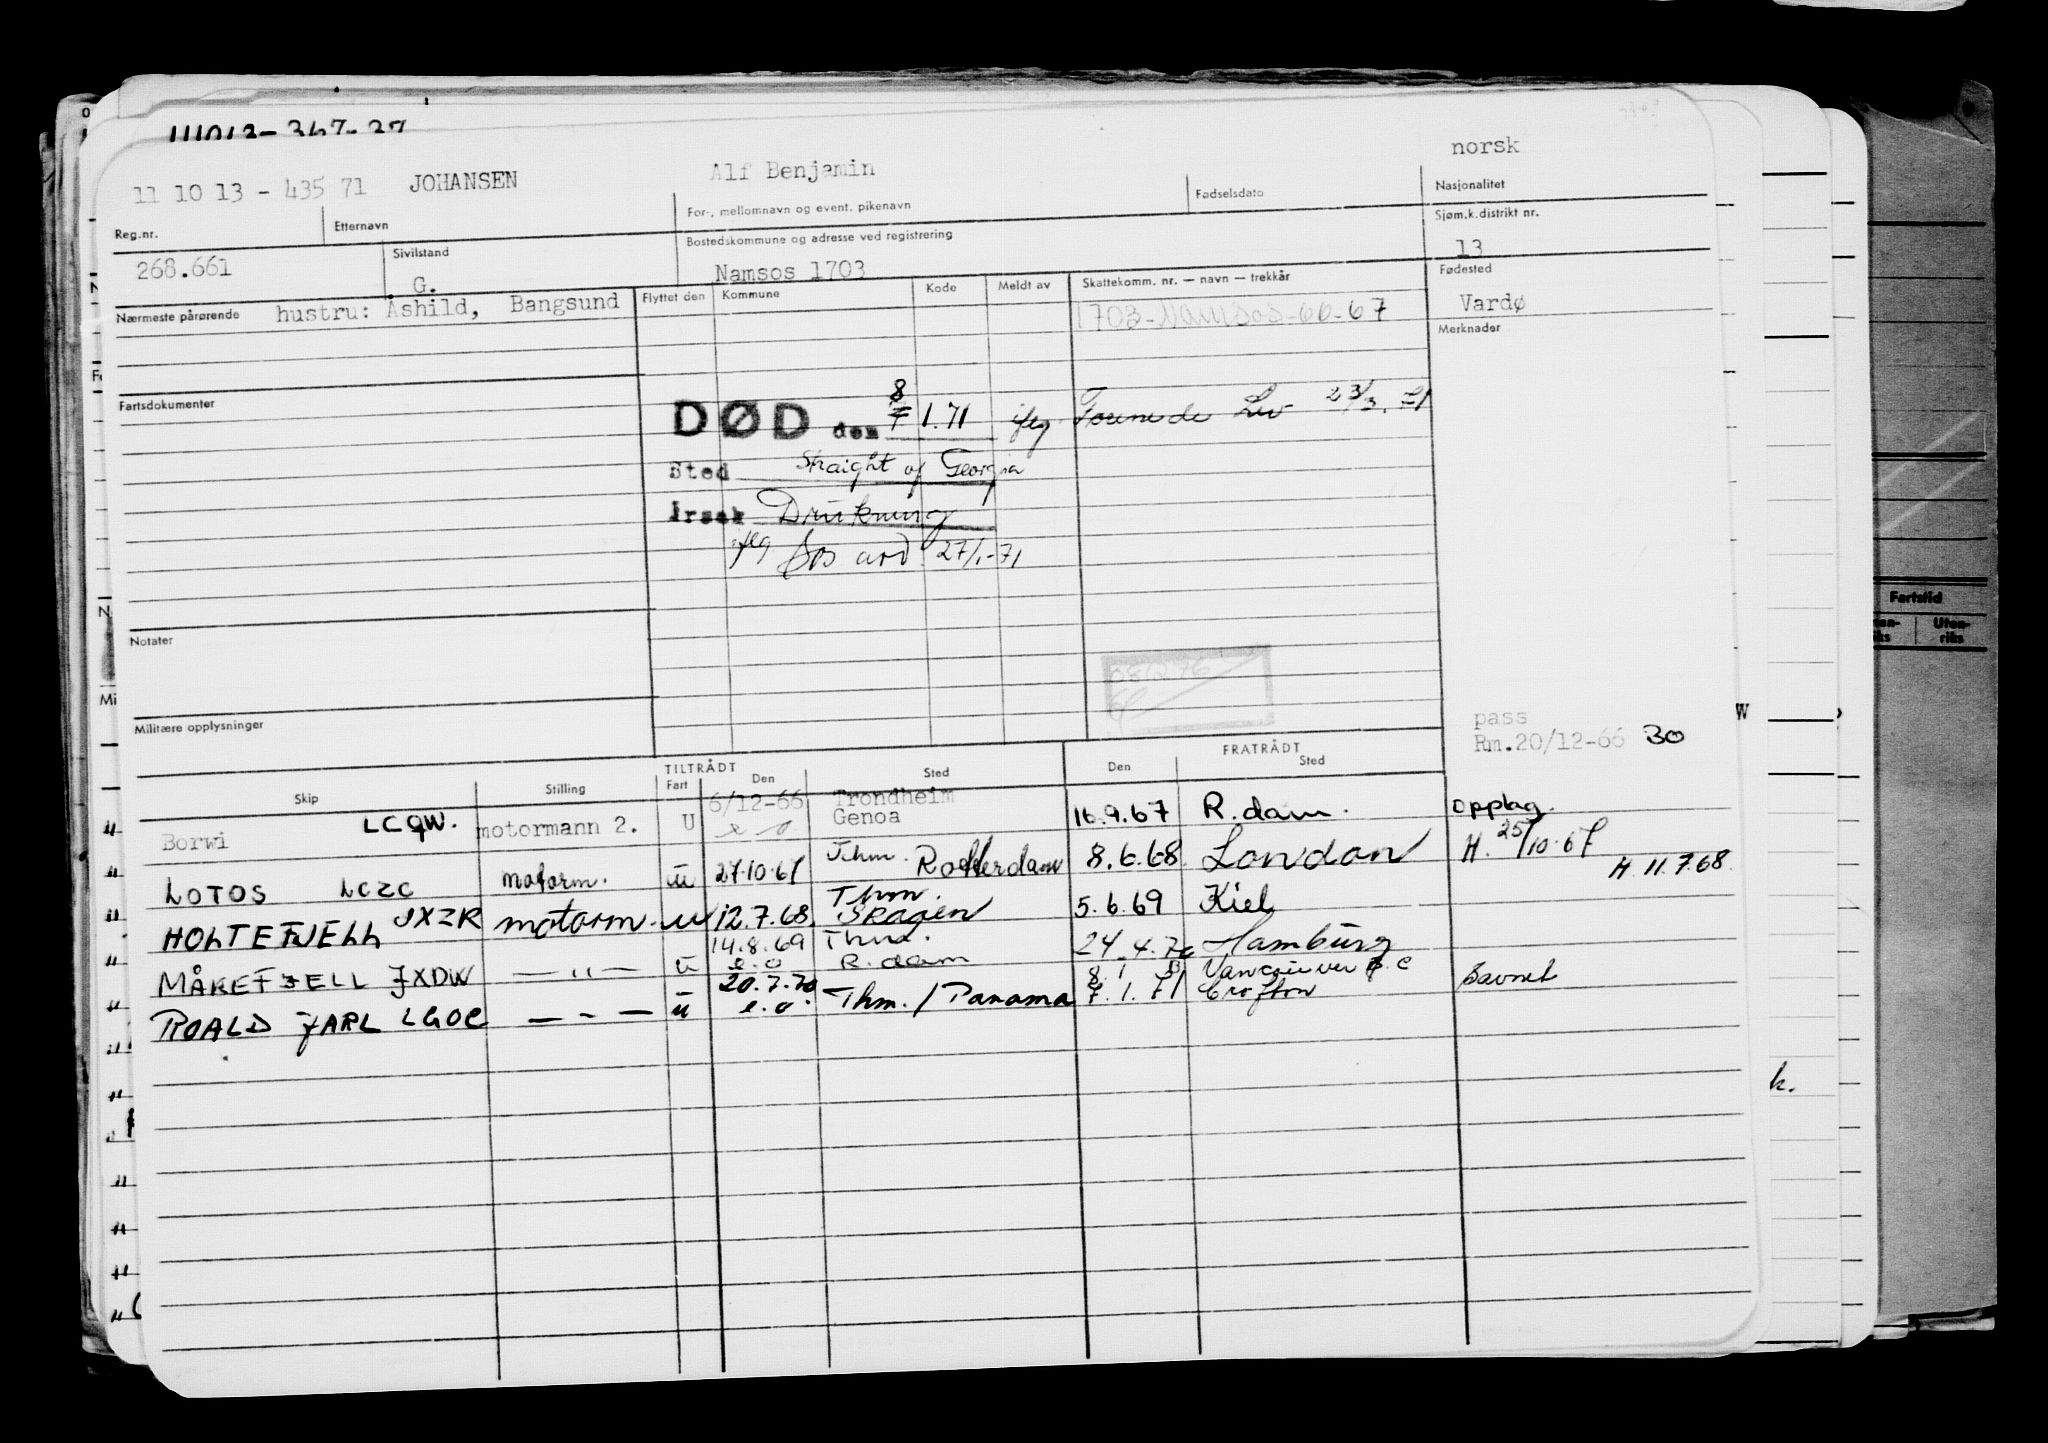 norsk
11 10 13 - 435 71 JOHANSEN Alf Benjamin
Reg.nr. Etternavn For-, mellomnavn og event. pikenavn Fødselsdato Nasjonalitet
268.661 Sivilstand G. Bostedskommune og adresse ved registrering Namsos 1703 Sjøm.k.distrikt nr. 13
Nærmeste pårørende hustru: Åshild, Bangsund Flyttet den Kommune Kode Meldt av Skattekomm. nr. — navn — trekkår Fødested Vardø
1703-Namsos-66-67
Merknader
Fartsdokumenter
DØD den 8/7 1.71 iflg 23/3.71
Sted Straight of Georgia
Årsak Drukning
iflg 27/1-71
Notater
Militære opplysninger
pass
Rm.20/12-66 30
TILTRÅDT FRATRÅDT
Skip Stilling Fart Den Sted Den Sted
Borwi LCQW. motormann 2. U 6/12-66 Trondheim Genoa 16.9.67 R.dam. Opplag.
LOTOS LCZC motorm. u 27.10.67 Thm. Rotterdam 8.6.68 London H. 25/10.67
H. 11.7.68
HOLTEFJELL JXZR motorm. u 12.7.68 Thm. SKAGEN 5.6.69 Kiel
MÅKEFJELL JXDW — " — u 14.8.69 e.o Thm. R.dam 24.4.70 Hamburg
ROALD JARL LGOC — " — u 20.7.70 e.o. Thm. / Panama 8/7.1.71 Vancouver B.C Crofton Savnet
Fartstid
Uten-
riks